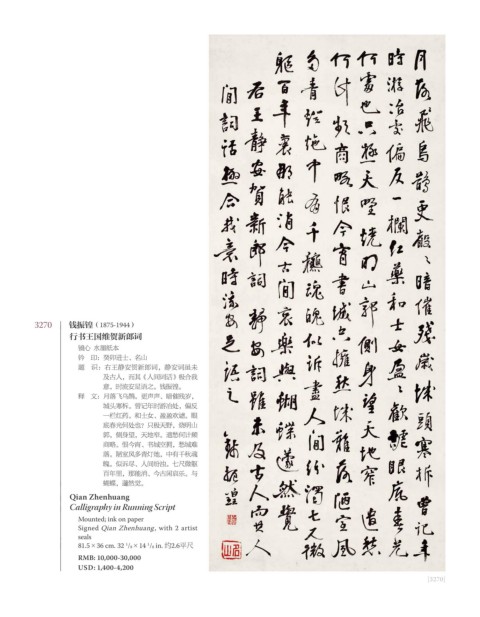 月落飛烏鵲更聲聲暗催殘歲城頭寒柝曾記年
時游冶處偏反一欄紅藥和士女盈盈歡謔眼底春光
何處也只極天野燒明山郭側身望天地窄遣愁
何計頻商略恨今宵書城空擁愁城難落陋室風
多青燈灺中有千秋魂魄似訴盡人間紛濁七尺微
軀百年裏那能消今古間哀樂與蝴蝶遽然覺
右王靜安賀新郎詞 靜安詞雖未及古人而其人
間詞話極合我意時流安足語之 錢振鍠
名山
3270 钱振锽（1875-1944）
行书王国维贺新郎词
镜心 水墨纸本
钤 印：癸卯进士、名山
题 识：右王静安贺新郎词，静安词虽未
及古人，而其《人间词话》极合我
意。时流安足语之。钱振锽。
释 文：月落飞乌鹊。更声声、暗催残岁，
城头寒柝。曾记年时游冶处，偏反
一栏红药。和士女、盈盈欢谑。眼
底春光何处也？只极天野，烧明山
郭。侧身望，天地窄。遣愁何计频
商略。恨今宵、书城空拥，愁城难
落。陋室风多青灯灺，中有千秋魂
魄。似诉尽、人间纷浊。七尺微躯
百年里，那能消、今古闲哀乐。与
蝴蝶，遽然觉。
Qian Zhenhuang
Calligraphy in Running Script
Mounted; ink on paper
Signed Qian Zhenhuang, with 2 artist
seals
81.5 × 36 cm. 32 1/8 × 14 1/8 in. 约2.6平尺
RMB: 10,000-30,000
USD: 1,400-4,200
[3270]